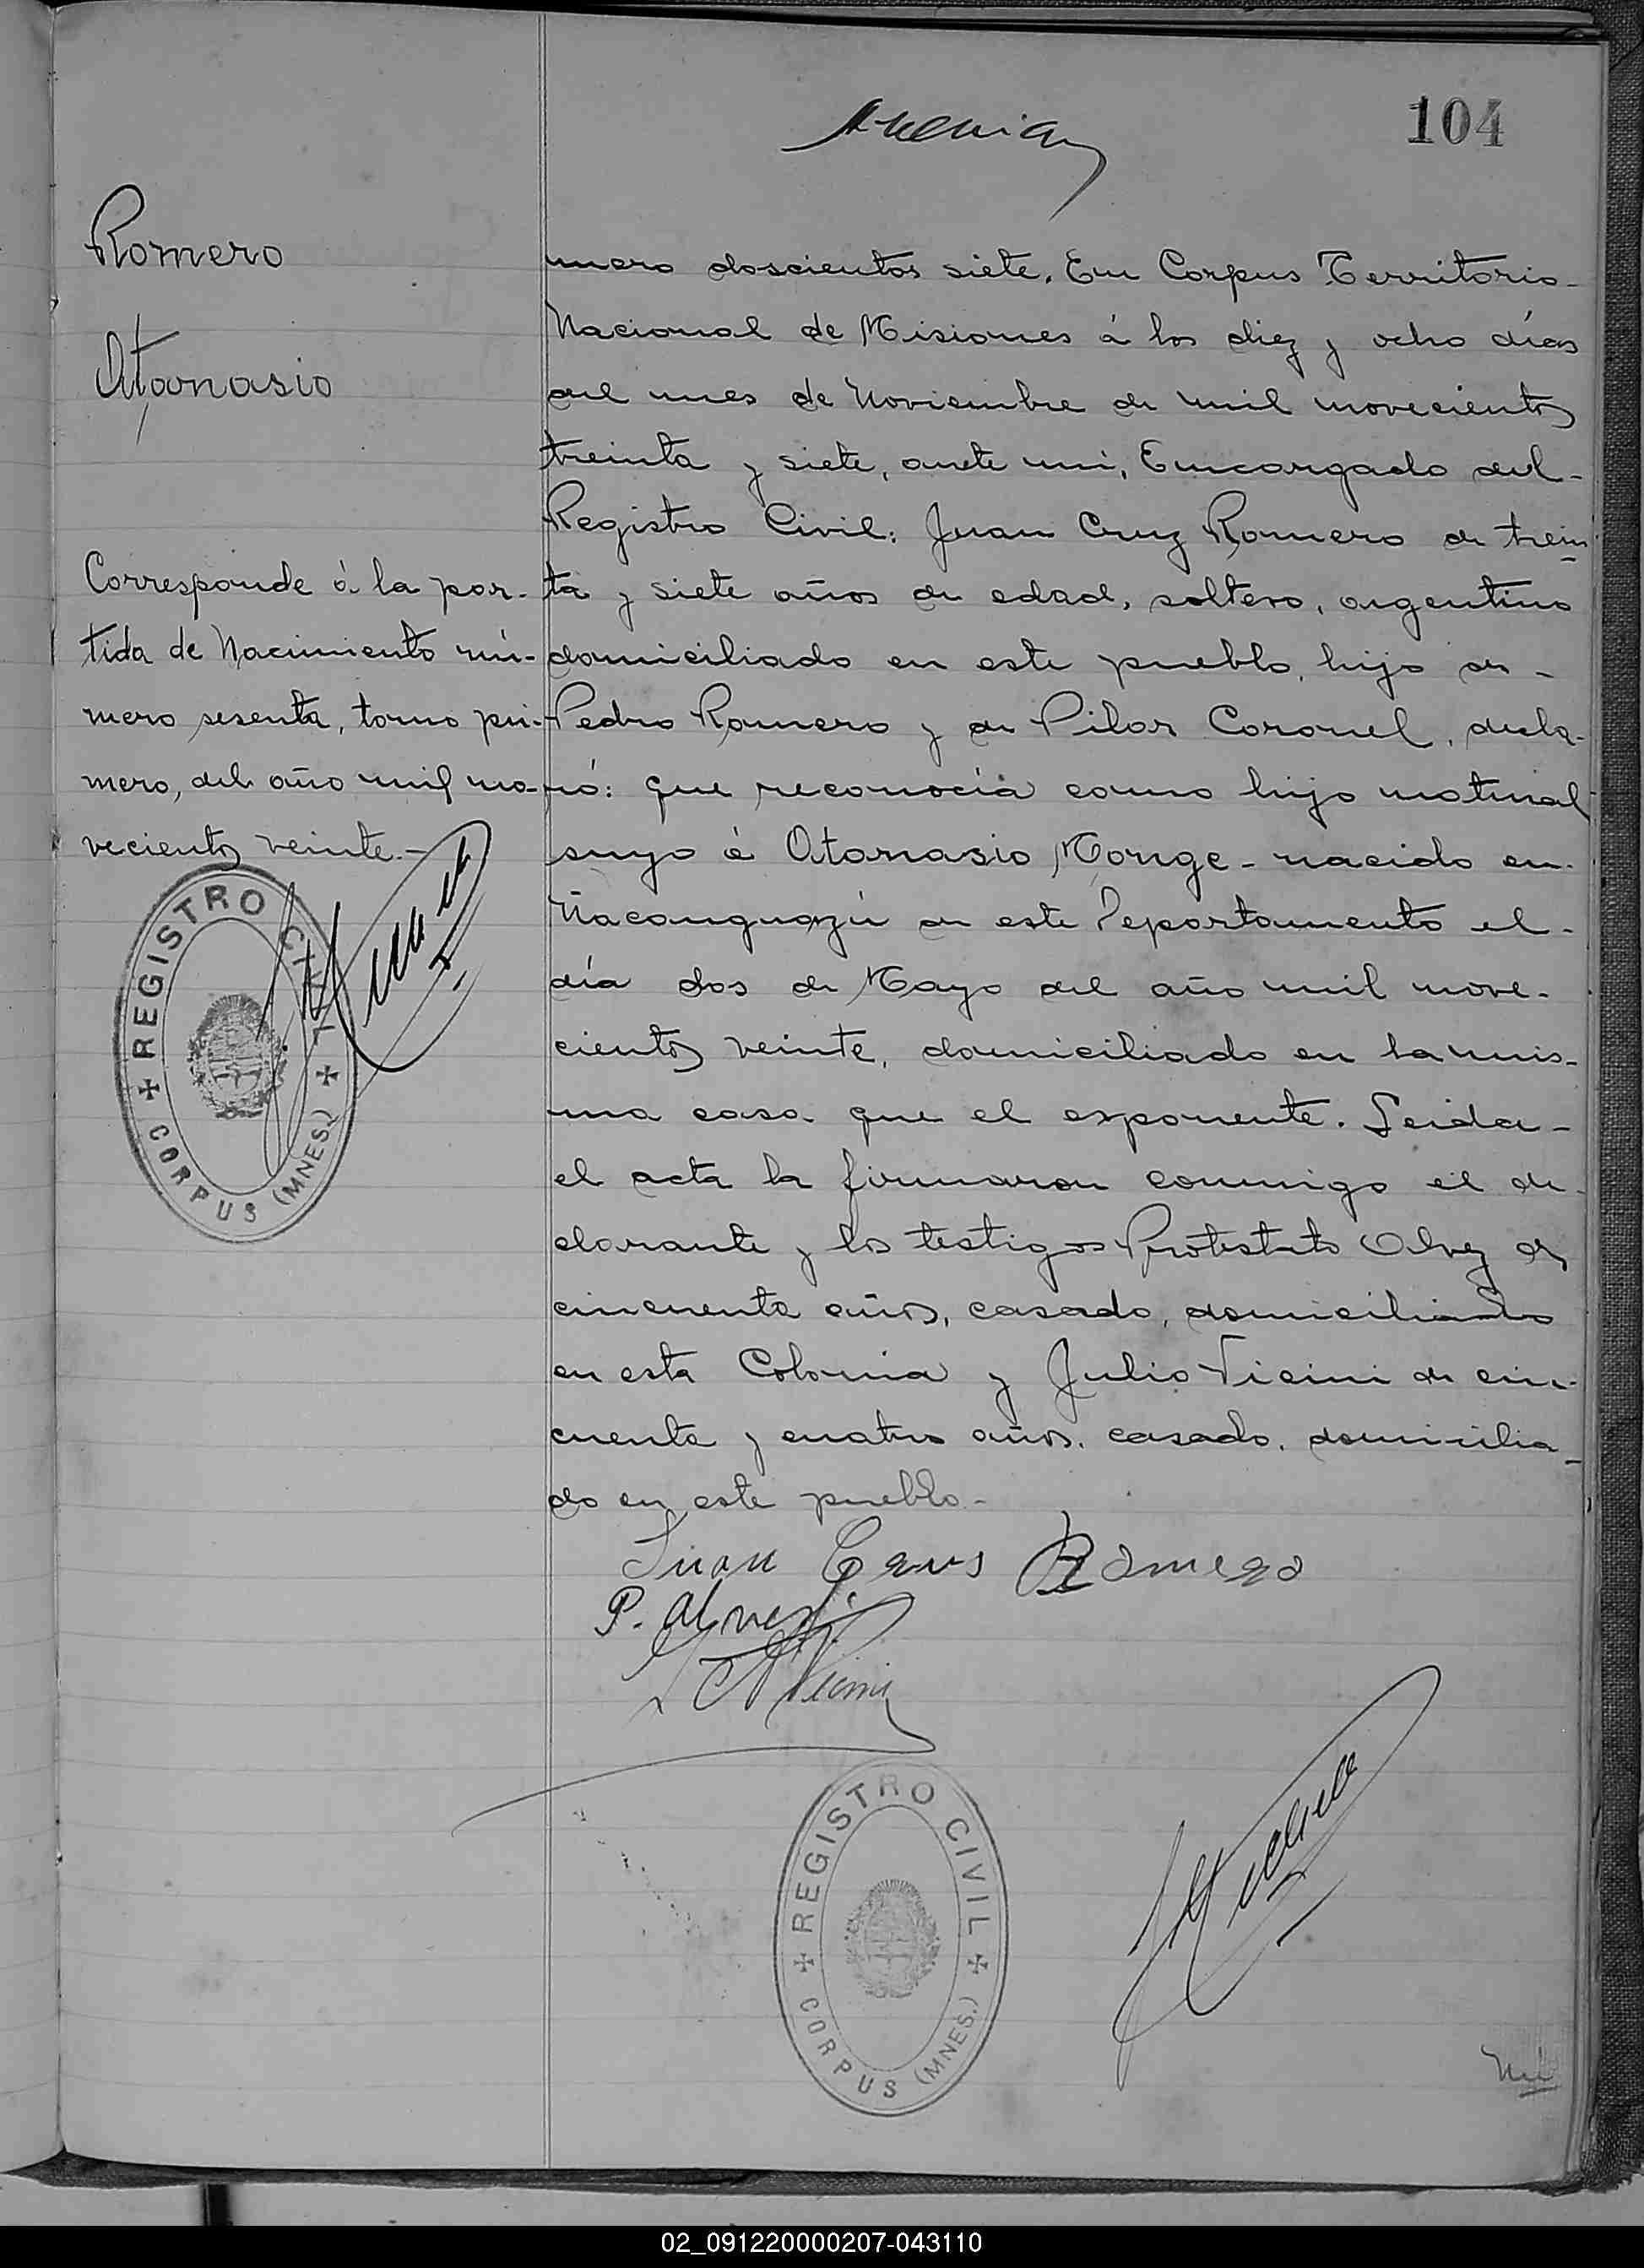 104
Romero
Atanasio
Corresponde á la par-
tida de Nacimiento nú-
mero sesenta, tomo pri-
mero, del año mil no-
vecientos veinte.-
REGISTRO CIVIL
CORPUS (MNES.)
mero doscientos siete. En Corpus Territorio
Nacional de Misiones á los diez y ocho días
del mes de Noviembre de mil novecientos
treinta y siete, ante mi, Encargado del-
Registro Civil: Juan Cruz Romero de trein
ta y siete años de edad, soltero, argentino
domiciliado en este pueblo, hijo de -
Pedro Romero y de Pilar Coronel, decla-
ró: que reconocía como hijo natural
suyo á Atanasio Monge - nacido en
Ñacanguazú de este Departamento el -
día dos de Mayo del año mil nove-
cientos veinte, domiciliado en la mis-
ma casa que el exponente. Leida -
el acta la firmaron conmigo el de-
clarante y los testigos Protestato Alvez de
cincuenta años, casado, domiciliado
en esta Colonia y Julio Vicini de cin-
cuenta y cuatro años, casado, domicilia-
do en este pueblo.-
Juan Crus Romero
P. Alvez
Vicini
REGISTRO CIVIL
CORPUS (MNES.)
Nú
02_091220000207-043110